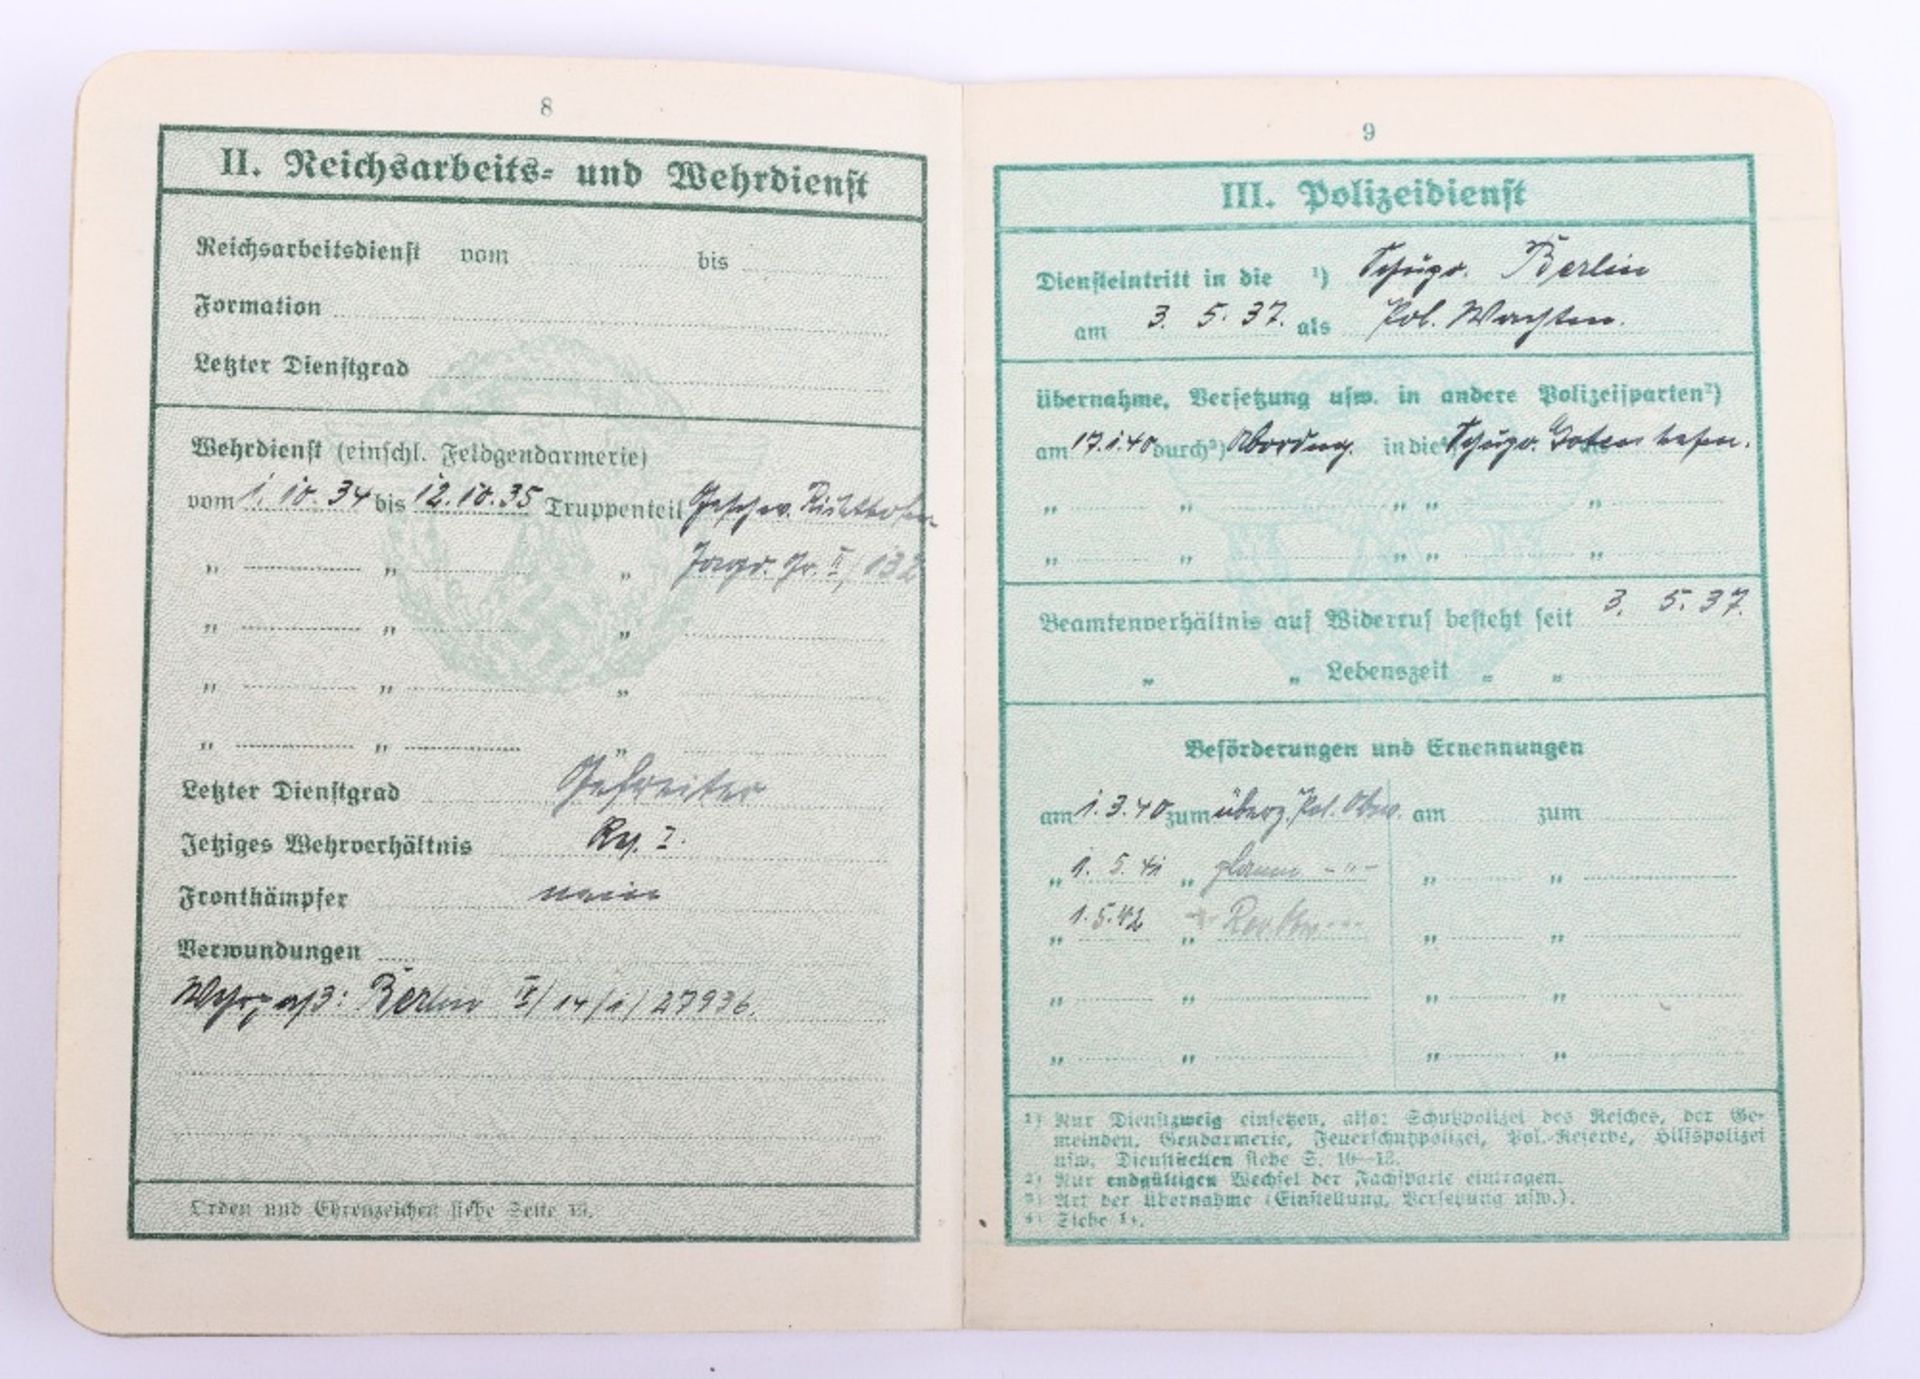 8
II. Reichsarbeits- und Wehrdienst
Reichsarbeitsdienst vom bis
Formation
Letzter Dienstgrad
Wehrdienst (einschl. Feldgendarmerie)
vom 1. 10. 34 bis 12. 10. 35 Truppenteil Geschw. Richthofen
" " " Jagd. Gr. II/132
" " "
" " "
" " "
Letzter Dienstgrad Gefreiter
Jetziges Wehrverhältnis Res. I.
Frontkämpfer nein
Verwundungen
Wehrpaß: Berlin IX/14/1/27936.
Orden und Ehrenzeichen siehe Seite 13.
9
III. Polizeidienst
Diensteintritt in die ¹) Schupo. Berlin
am 3. 5. 37. als Pol. Wachtm.
Übernahme, Versetzung usw. in andere Polizeisparten²)
am 17.1.40 durch³) Abordng. in die⁴) Schupo. Gotenhafen.
" " " " "
" " " " "
Beamtenverhältnis auf Widerruf besteht seit 3. 5. 37.
" " Lebenszeit " "
Beförderungen und Ernennungen
am 1. 3. 40 zum überz. Pol. Obw. am zum
" 1. 5. 41 " planm -"- " "
" 1. 5. 42 " " "
" " " "
" " " "
¹) Nur Dienstzweig einsetzen, also: Schutzpolizei des Reiches, der Ge-
meinden, Gendarmerie, Feuerschutzpolizei, Pol.-Reserve, Hilfspolizei
usw. Dienststellen siehe S. 10—12.
²) Nur endgültigen Wechsel der Fachsparte eintragen.
³) Art der Übernahme (Einstellung, Versetzung usw.).
⁴) Siehe 1).